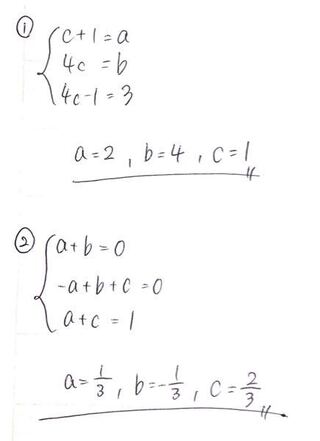 ① c+1=a
4c =b
4c-1=3
a=2, b=4, c=1
② a+b=0
-a+b+c=0
a+c=1
a=1/3, b=-1/3, c=2/3